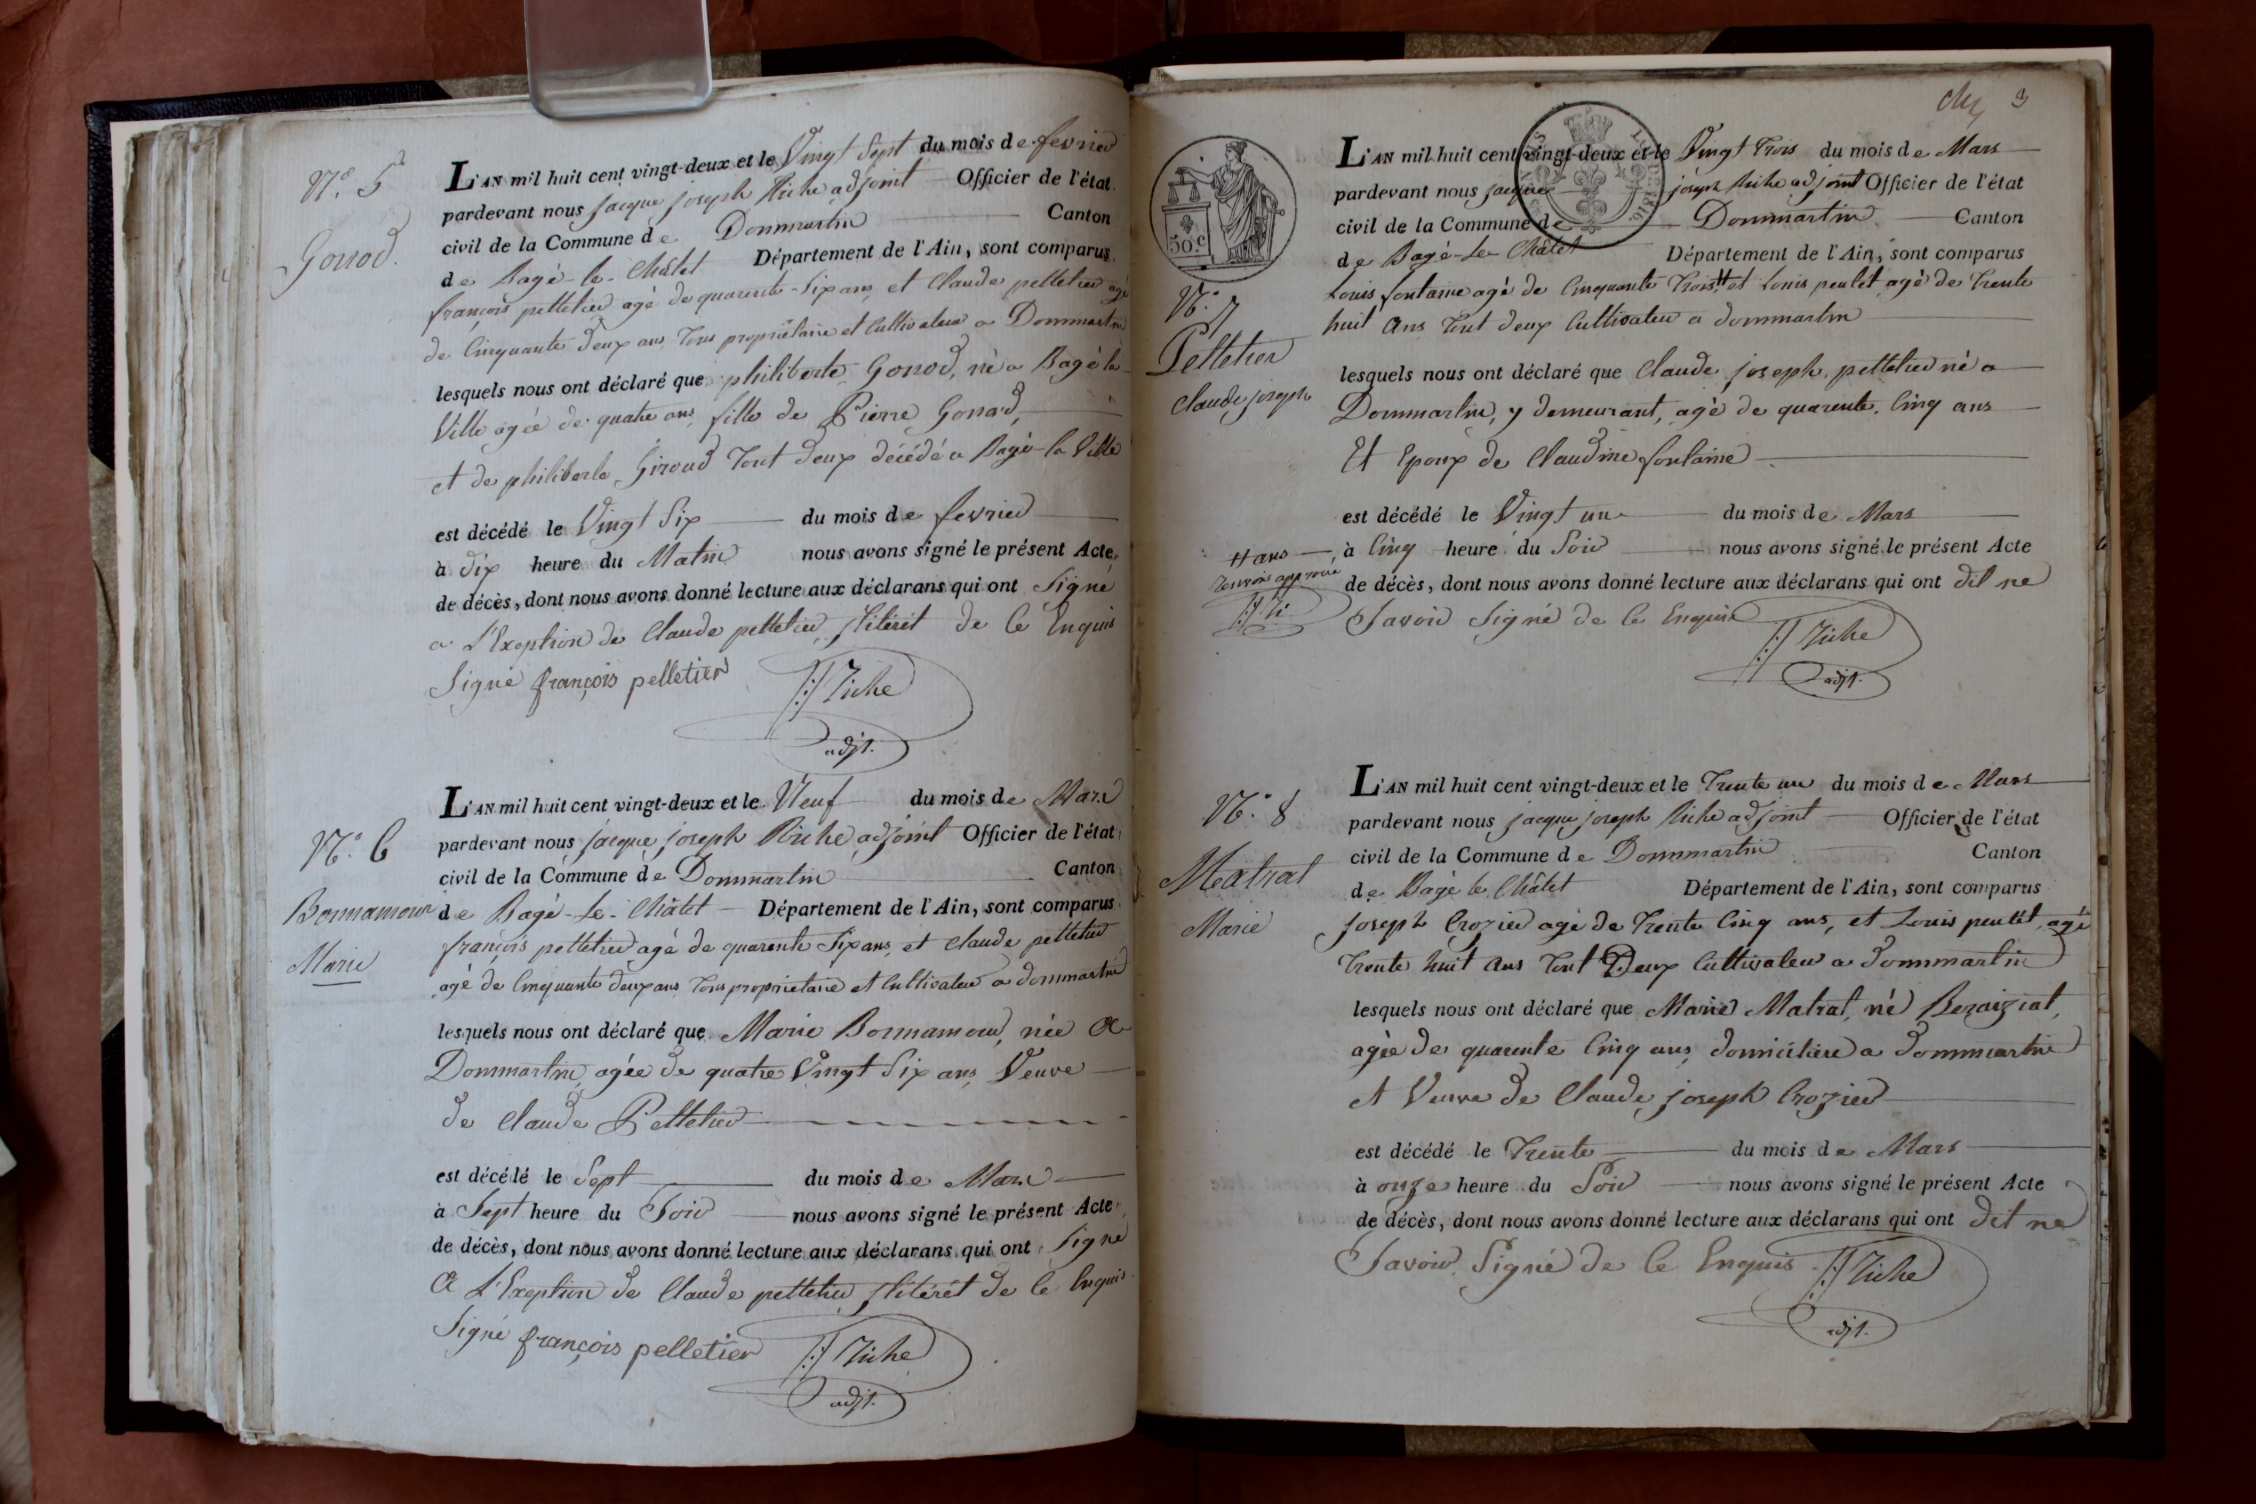 N.º 5
Gonod.
L'AN mil huit cent vingt-deux et le Vingt Sept du mois de fevrier
pardevant nous jacque joseph Riche adjoint Officier de l'état
civil de la Commune de Dommartin Canton
de Bagé-le-Châtel Département de l'Ain, sont comparus
françois pelletier agé de quarente-Six ans, et Claude pelletier agé
de Cinquante deux ans, Tous propriétaire et Cultivateur a Dommartin
lesquels nous ont déclaré que philiberte Gonod, né a Bagé la
Ville agée de quatre ans, fille de Pierre Gonod,
et de philiberte Giroud Tout deux décédé a Bagé-la Ville
est décédé le Vingt Six du mois de fevrier
à dix heure du Matin nous avons signé le présent Acte
de décès, dont nous avons donné lecture aux déclarans qui ont Signé
a L'Exeption de Claude pelletier, de Ce Enquis
Signé françois pelletier JJ Riche
adjt.
N.º 6
Bonnamour
Marie
L'AN mil huit cent vingt-deux et le Neuf du mois de Mars
pardevant nous jacque joseph Riche adjoint Officier de l'état
civil de la Commune de Dommartin Canton
de Bagé-Le-Châtel Département de l'Ain, sont comparus
françois pelletier agé de quarente Six ans, et Claude pelletier
agé de Cinquante deux ans Tous proprietaire et Cultivateur a dommartin
lesquels nous ont déclaré que Marie Bonnamour, née a
Dommartin, agée de quatre Vingt Six ans, Veuve
de Claude Pelletier
est décédé le Sept du mois de Mars
à Sept heure du Soir nous avons signé le présent Acte
de décès, dont nous avons donné lecture aux déclarans qui ont Signé
a L'Exeption de Claude pelletier de Ce Enquis
Signé françois pelletier JJ Riche
adjt.
3
50.c
1816
N.º 7
Pelletier
Claude joseph
L'AN mil huit cent vingt-deux et le Vingt Trois du mois de Mars
pardevant nous jacque joseph Riche adjoint Officier de l'état
civil de la Commune de Dommartin Canton
de Bagé-Le-Châtel Département de l'Ain, sont comparus
Louis fontaine agé de Cinquante Trois # et Louis peulet agé de Trente
huit ans Tout deux Cultivateur a dommartin
lesquels nous ont déclaré que Claude joseph pelletier né a
Dommartin, y demeurant, agé de quarente Cinq ans
Et Epoux de Claudine fontaine
est décédé le Vingt un du mois de Mars
# ans
renvois approuvé
à Cinq heure du Soir nous avons signé le présent Acte
de décès, dont nous avons donné lecture aux déclarans qui ont dit ne
Savoir Signé de Ce Enquis
JJ Riche
adjt.
N.º 8
Matrat
Marie
L'AN mil huit cent vingt-deux et le Trente un du mois de Mars
pardevant nous jacque joseph Riche adjoint Officier de l'état
civil de la Commune de Dommartin Canton
de Bagé le Châtel Département de l'Ain, sont comparus
joseph Crozier agé de Trente Cinq ans, et Louis peulet, agé
Trente huit ans Tout Deux Cultivateur a dommartin
lesquels nous ont déclaré que Marie Matrat, né Bezaiziat,
agée de quarente Cinq ans, domicilière a dommartin
et Veuve de Claude joseph Crozier
est décédé le Trente du mois de Mars
à onze heure du Soir nous avons signé le présent Acte
de décès, dont nous avons donné lecture aux déclarans qui ont dit ne
Savoir Signé de Ce Enquis JJ Riche
adjt.